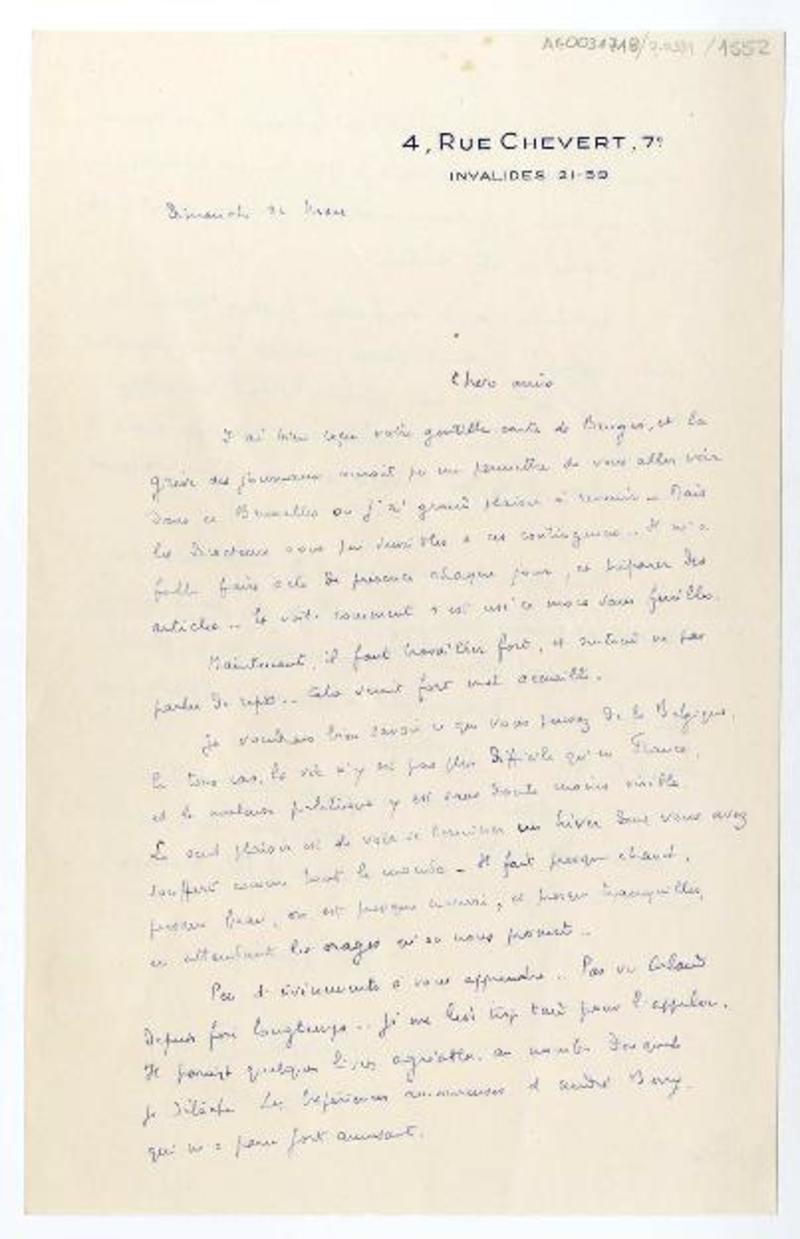 4, RUE CHEVERT, 7e
INVALIDES 21-59
Dimanche de
Chers amis
J'ai bien reçu votre gentille carte de Bruges, et la
grève des journaux aurait pu me permettre de vous aller voir
dans ce Bruxelles où j'ai grand plaisir à revenir.. Mais
les Directeurs sont peu sensibles à ces contingences.. Il m'a
fallu faire acte de présence chaque jour, et préparer des
articles.. Et voilà comment s'est usé ce mois sans feuilles.
Maintenant, il faut travailler fort, et surtout ne pas
parler de repos... Cela serait fort mal accueilli.
Je voudrais bien savoir ce que vous pensez de la Belgique.
En tous cas, la vie n'y est pas plus difficile qu'en France,
et le malaise politique y est sans doute moins visible
Le seul plaisir est de voir se terminer un hiver dont vous avez
souffert comme tout le monde - Il fait presque chaud,
presque beau, on est presque nourri, et presque tranquilles,
en attendant les orages qu'on nous promet..
Pas d'événements à vous apprendre.. Pas vu Arland
depuis fort longtemps.. Je me lève trop tard pour l'appeler.
Il paraît quelques livres agréables au nombre desquels
je détache Les Expériences amoureuses d'André Berry
qui m'a paru fort amusant.